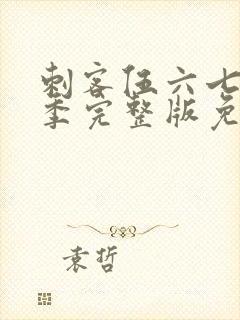 刺客伍六七
季完整版免
袁哲